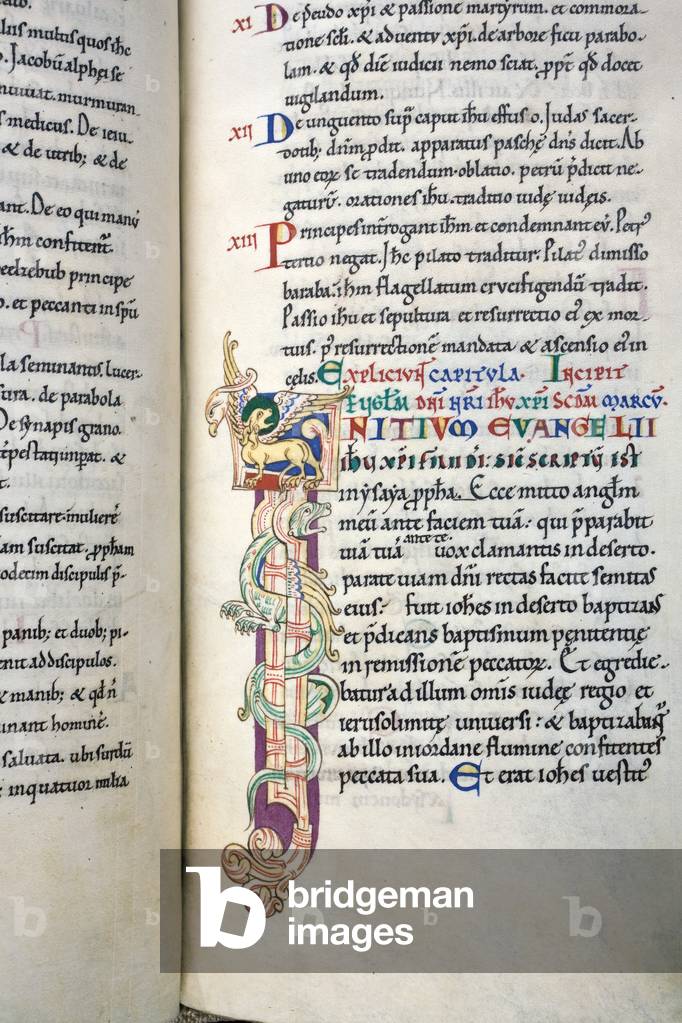 lius mutus quos ihc
Jacobū alphei se
murmuran
medicus. De ieiu
& de utrib; & de
ant. De eo qui manū
ihm confitent.
beelzebub principe
o. et peccanti in spū
la seminantis. lucer
de parabola
De synapis grano.
& 
suscitare. muliere
am suscitat. ppham
odecim discipulis p̄
panib; et duob; pi
enit ad discipulos.
& manib; & qd n̄
inant homine.
saluata. ubi surdū
inquatuor milia
XI De pseudo xp̄i & passione martyrum. et commora
tione scli. & aduentu xp̄i. de arbore ficu parabo
lam. & qd diē iudicii nemo sciat. ppt qd docet
uigilandum.
XII De unguento sup caput ihu effuso. Judas sacer
dotib; dnm pdit. apparatus paschę dn̄s dicit. Ab
uno eoꝝ se tradendum. oblatio. petrū pdicit ne
gaturū. orationes ihu. traditio iudę iudeis.
XIII Principes interrogant ihm et condemnant eū. Petr᷒
tertio negat. Jhc pilato traditur. Pilat᷒ dimisso
baraba. ihm flagellatum crucifigendū tradit.
Passio ihu et sepultura et resurrectio ei᷒ ex mor
tuis. p᷒ resurrectionē mandata & ascensio ei᷒ in
celis. EXPLICIUNT CAPITULA. INCIPIT
EUGLM DNI NRI IHU XPI SCDM MARCU.
INITIUM EVANGELII
IHU XPI FILII DI: SIC SCRIPTU EST
in ysaya ppha. Ecce mitto anglm
meū ante faciem tuā: qui pparabit
uiā tuā ante te. uox clamantis in deserto.
parate uiam dn̄i rectas facite semitas
eius: fuit iohes in deserto baptizans
et pdicans baptismum penitentię
in remissionē peccatoꝝ. Et egredie
batur ad illum omis iudeę regio et
ierusolimitę uniuersi: & baptizabant᷒
ab illo in iordane flumine confitentes
peccata sua. Et erat iohes uestit᷒
b bridgeman
images